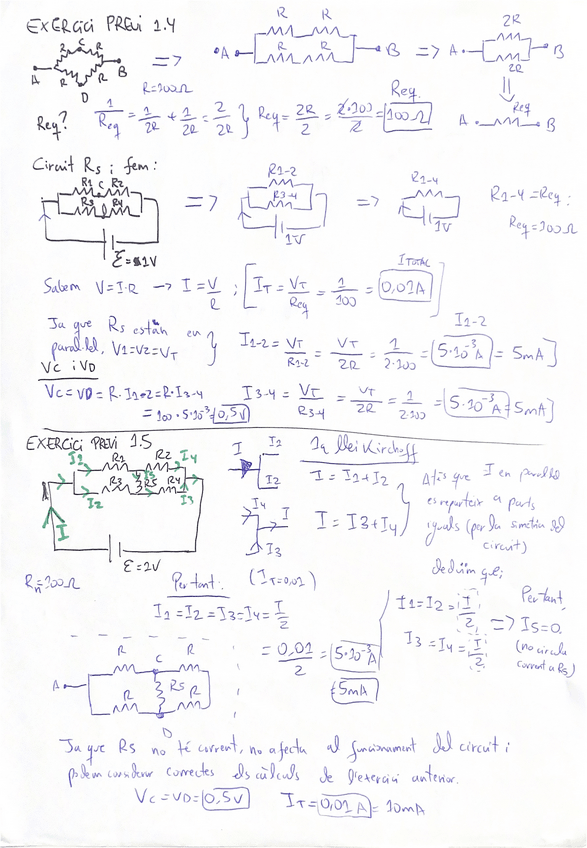 EXERCICI PREVI 1.4
R C R
A B
R D R
R=100Ω
=>
R R
A B
R R
=>
2R
A B
2R
Req
A B
Req?
1/Req = 1/2R + 1/2R = 2/2R } Req = 2R/2 = 2·100/2 = 100Ω
Req
Circuit Rs i fem:
R1 C R2
R3 R4
ε=1V
=>
R1-2
R3-4
1V
=>
R1-4
1V
R1-4=Req:
Req=100Ω
Sabem V=I·R → I=V/R ; [IT = VT/Req = 1/100 = 0,01A]
ITOTAL
Ja que Rs están en
paral·lel, V1=V2=VT }
I1-2 = VT/R1-2 = VT/2R = 1/2·100 = 5·10⁻³A = 5mA]
I1-2
VC i VD
VC=VD=R·I1-2=R·I3-4
=100·5·10⁻³=0,5V
I3-4 = VT/R3-4 = VT/2R = 1/2·100 = 5·10⁻³A = 5mA]
EXERCICI PREVI 1.5
I1 R1 R2 I4
I5
I2 R3 R5 R4 I3
A
I
ε=1V
Rn=100Ω
1a Llei Kirchoff
I I1 I2
I = I1+I2
I4 I I3
I = I3+I4
Atès que I en paral·lel
es reparteix a parts
iguals (per la simetria del
circuit)
deduïm que;
Per tant: (IT=0,01)
I1=I2=I3=I4=I/2
= 0,01/2 = 5·10⁻³A
=5mA
I1=I2=I/2
I3=I4=I/2
Per tant,
=> I5=0.
(no circula
corrent a R5)
R C R
A
R5
R R
D
Ja que R5 no té corrent, no afecta al funcionament del circuit i
podem considerar correctes els càlculs de l'exercici anterior.
VC=VD=0,5V IT=0,01A=10mA